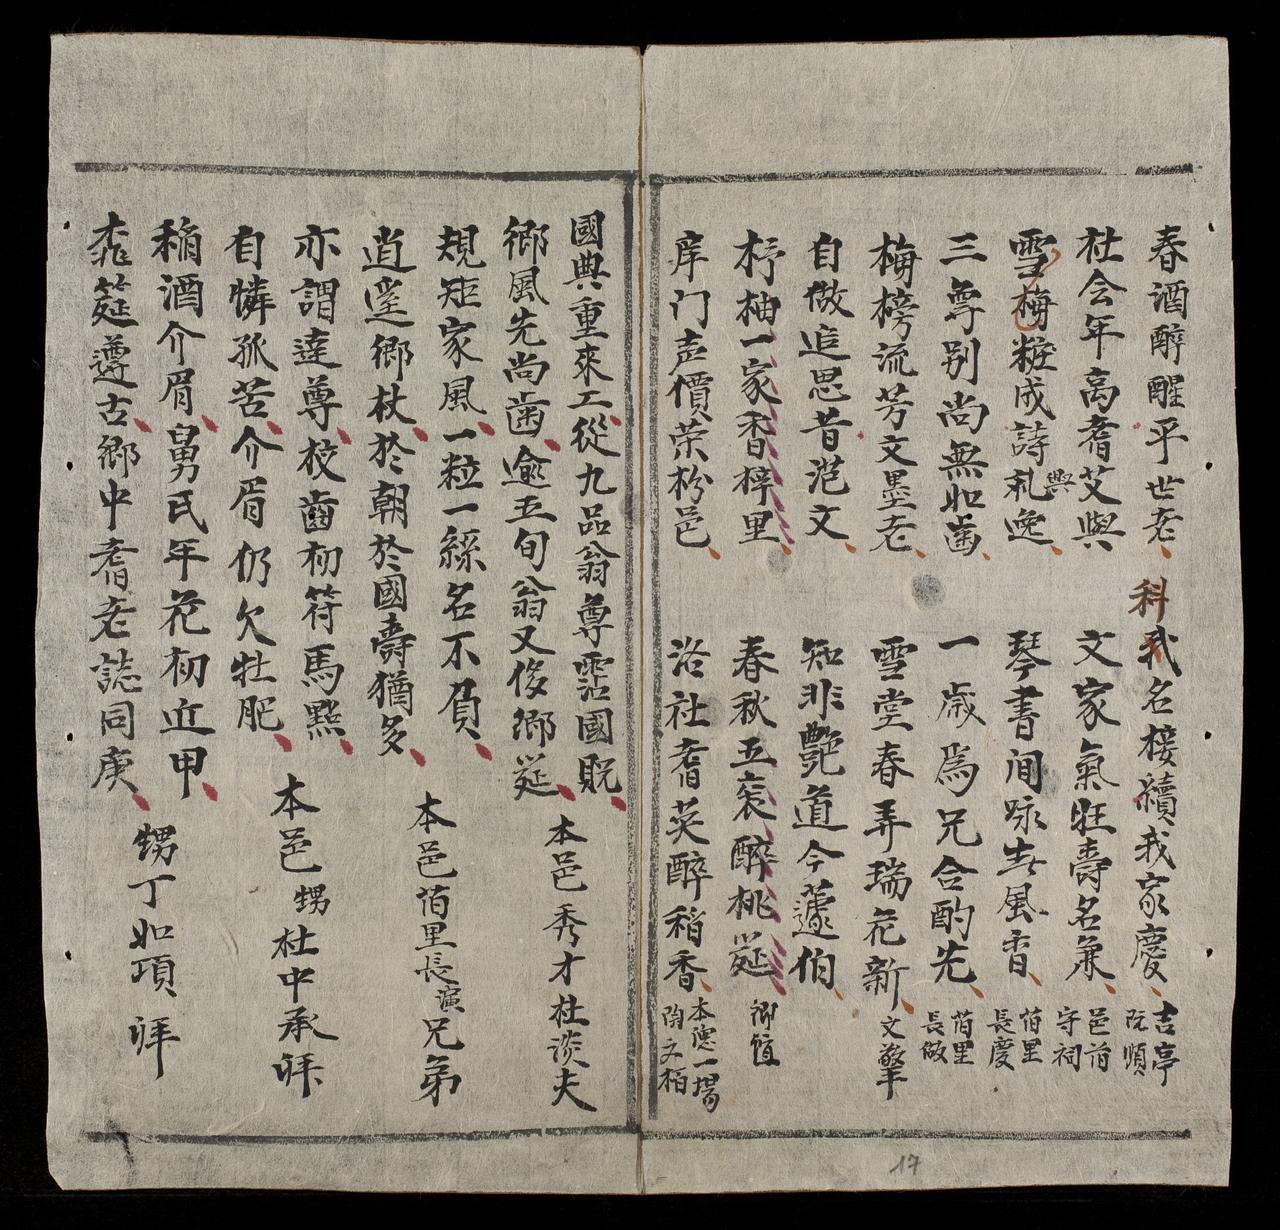 春酒醉醒乎世老 科我名接續我家慶 吉亭阮順
社会年高耆艾與 文家氣旺壽名兼 邑前守祠
雪梅粧成詩礼逸 琴書间咏春風香 前里長慶
三尊别尚無如歯 一歳爲兄合酌先 前里長倣
梅榜流芳文墨老 雪堂春弄瑞花新 文擎
自倣追思昔范文 知非艷道今蘧伯
杼柚一家香梓里 春秋五袠醉桃筵 鄉值
庠门声價荣枌邑 洛社耆英醉稻香 本總一場陶文栢
國典重來工從九品翁尊霑國貺
鄉風先尚歯逾五旬翁又侈鄉筵 本邑秀才杜淡夫
規矩家風一粒一絲名不負
逍遥鄉杖於朝於國壽猶多 本邑前里長演兄弟
亦謂達尊校齒初符馬㸃
自憐孤苦介眉仍欠牡肥 本邑甥杜中承拜
稱酒介眉舅氏年花初近甲
筵遵古鄉中耆老誌同庚 甥丁如項拜
17